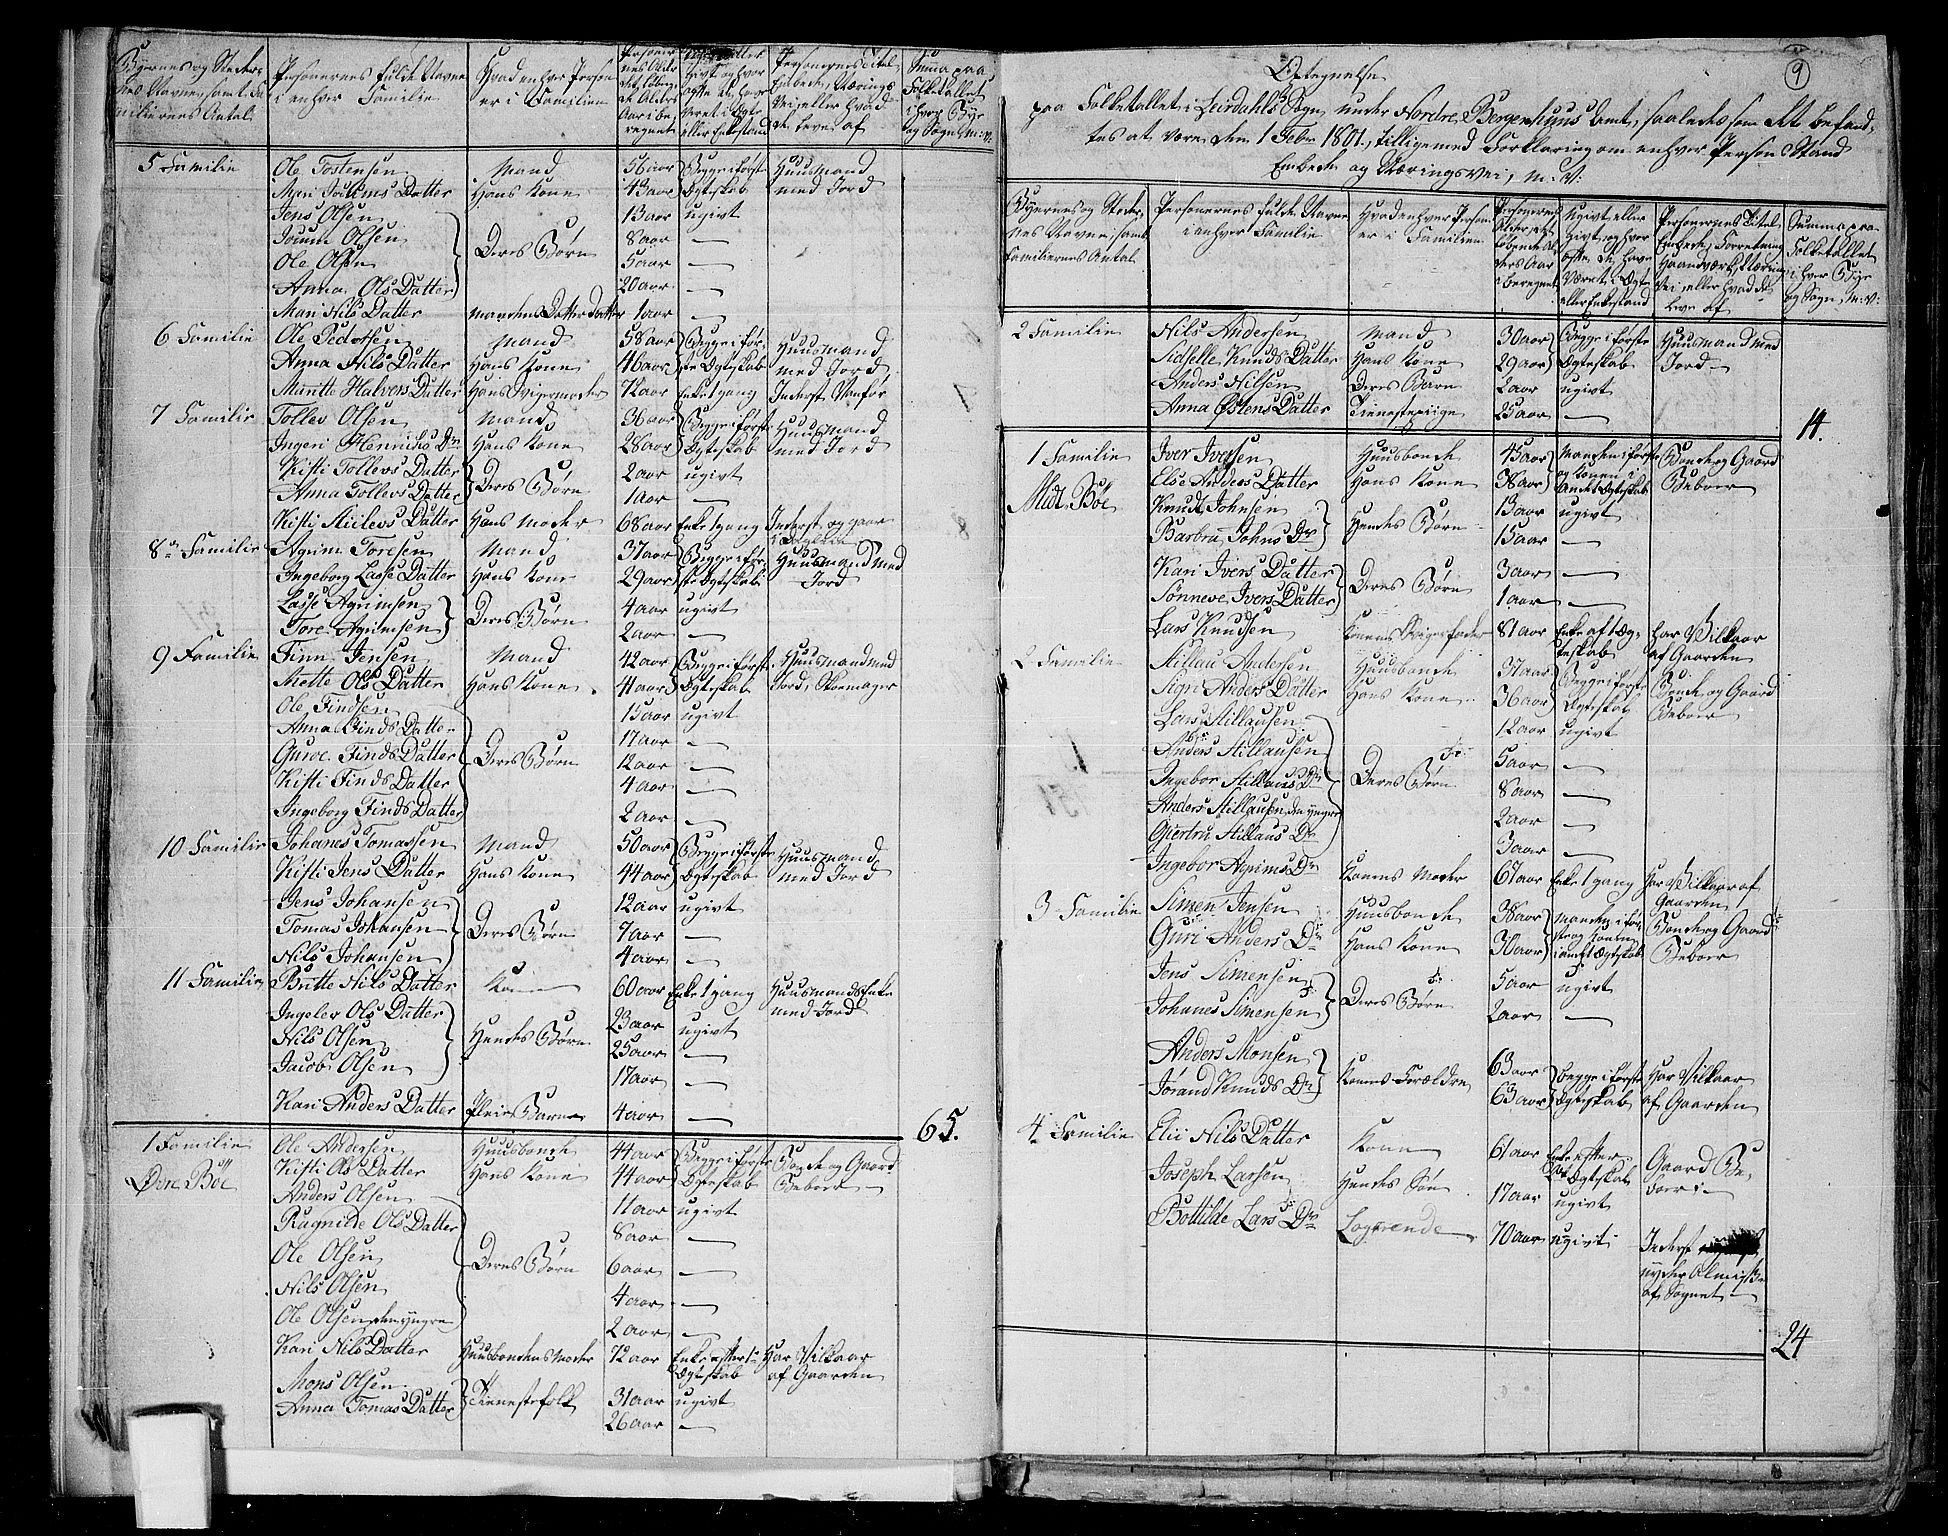 Personernes fulde Navne
i enhver Familie
Hvad enhver Person
er i Familien
5 Familie Ole Tostensen Mand 56 aar Begge i første Huusmand
Hans Kone 43 aar Ægteskab med Jord
Jens Olsen 13 aar ugivt
Olsen 8 aar —
Ole Olsen Deres Børn 5 aar —
Anna Ols Datter 20 aar —
Mari Nils Datter mandens Datter Datter 1 aar —
6 Familie Ole Pedersen Mand 58 aar Begge i før- Huusmand
Anna Nils Datter Hans Kone 46 aar ste Ægteskab med Jord
Halvors Datter Hans Svigermoder 72 aar Enke 1 gang Inderst Vanfør
7 Familie Tollev Olsen Mand 36 aar Begge i første Huusmand
Ingeri Henriks Dr Hans Kone 28 aar Ægteskab med Jord
Kisti Tollevs Datter 2 aar ugivt
Anna Tollevs Datter Deres Børn 1 aar —
Kisti Datter Hans Moder 68 aar Enke 1 gang Inderst og
8de Familie Agrim Toresen Mand 37 aar Begge i før- Huusmand med
Ingeborg Lasse Datter Hans Kone 29 aar ste Ægteskab Jord
Lasse Agrimsen 4 aar ugivt
Tore Agrimsen Deres Børn 2 aar —
9 Familie Finn Jensen Mand 42 aar Begge i første Huusmand med
Mette Ols Datter Hans Kone 41 aar Ægteskab Jord, Skomager
Ole Findsen 15 aar ugivt
Anna Finds Datter 17 aar —
Guroe Finds Datter Deres Børn 12 aar —
Kisti Finds Datter 4 aar —
Ingeborg Finds Datter 2 aar —
10 Familie Johanes Tomassen Mand 50 aar Begge i første Huusmand
Kisti Jens Datter Hans Kone 44 aar Ægteskab med Jord
Jens Johansen 12 aar ugivt
Tomas Johansen Deres Børn 7 aar —
Nils Johansen 4 aar —
11 Familie Britte Nils Datter Kone 60 aar Enke 1 gang Huusmands Enke
med Jord
Ingelev Ols Datter 23 aar ugivt
Nils Olsen Hendes Børn 25 aar —
Jacob Olsen 17 aar —
Kari Anders Datter Pleie Barn 4 aar —
65.
1 Familie Ole Andersen Huusbonde 44 aar Begge i første Bonde og Gaard
Øvre Böe Kisti Ols Datter Hans Kone 44 aar Ægteskab Beboer
Anders Olsen 11 aar ugivt
Ragnilde Ols Datter 8 aar —
Ole Olsen Deres Børn 6 aar —
Nils Olsen 4 aar —
Ole Olsen, den yngre 2 aar —
Kari Nils Datter Huusbondens Moder 72 aar Enke efter 1te Har Vilkaar
Ægteskab af Gaarden
Mons Olsen 31 aar ugivt
Anna Tomas Datter Tienestefolk 26 aar —
9
Optegnelse
paa Folketallet i Leirdahls Sogn under Nordre Bergenhuus Amt, saaledes som det befand-
tes at være den 1 Febr. 1801, tilligemed Forklaring om enhver Persons Stand
Embede og Næringsvei, m: V:
Byernes og Steder-
nes Navne, samt
Familiernes Antal
Personernes fulde Navne
i enhver Familie
Hvad enhver Person
er i Familien
Personernes
Alder, det
løbende Al-
ders Aar
iberegnet
Ugivt eller
givt, og hvor
ofte de have
været i Ægte
eller Enkestand
Personernes Titel,
Embede, Forretning
Haandværk, Næring
Vei, eller hvad de
leve af
Summa paa
Folketallet
i hver Bye
og Sogn, m: V:
2 Familie Nils Andersen Mand 30 aar Begge i første Huusmand med
Sidselle Knuds Datter Hans Kone 29 aar Ægteskab Jord
Anders Nilsen Deres Barn 2 aar ugivt
Anna Østens Datter Tienestepiige 25 aar —
14.
1 Familie Iver Iversen Huusbonde 45 aar Manden i første Bonde og Gaard
Midt Böe Else Anders Datter Hans Kone 38 aar og Konen i andet Ægteskab Beboer
Knudt Johnsen 13 aar ugivt
Barbra Johns Dr Hendes Børn 15 aar —
Kari Ivers Datter 3 aar —
Sönneve Ivers Datter Deres Børn 1 aar —
Lars Knudsen Konens Svigerfader 81 aar Enke af 1 Æg- har Vilkaar
teskab af Gaarden
2 Familie Stillau Andersen Huusbonde 37 aar Begge i første Bonde og Gaard
Signi Anders Datter Hans Kone 36 aar Ægteskab Beboer
Lars Stillausen 12 aar ugivt
Anders Stillausen 5 aar —
Ingebor Stillaus Dr Deres Børn 8 aar —
Anders Stillausen den yngre 2 aar —
Giertru Stillaus Dr 3 aar —
Ingebor Agrims Dr Konens Moder 67 aar Enke 1 gang Har Vilkaar af
Gaarden
3 Familie Simen Jensen Huusbonde 38 aar Manden i før- Bonde og Gaard
Guri Anders Dr Hans Kone 30 aar ste og Konen i andet Ægteskab Beboer
Jens Simensen 5 aar ugivt
Johanes Simensen Deres Børn 2 aar —
Anders Monsen 63 aar begge i første Har Vilkaar
Jørand Knuds Dr Konens Forældre 63 aar Ægteskab af Gaarden
4 Familie Elii Nils Datter Kone 61 aar Enke efter Gaard Be-
Ægteskab boer
Joseph Larsen Hendes Søn 17 aar ugivt
Bottilde Lars Dr Logerende 70 aar ugivt Inderst
nyder Almisse
af Sognet
24